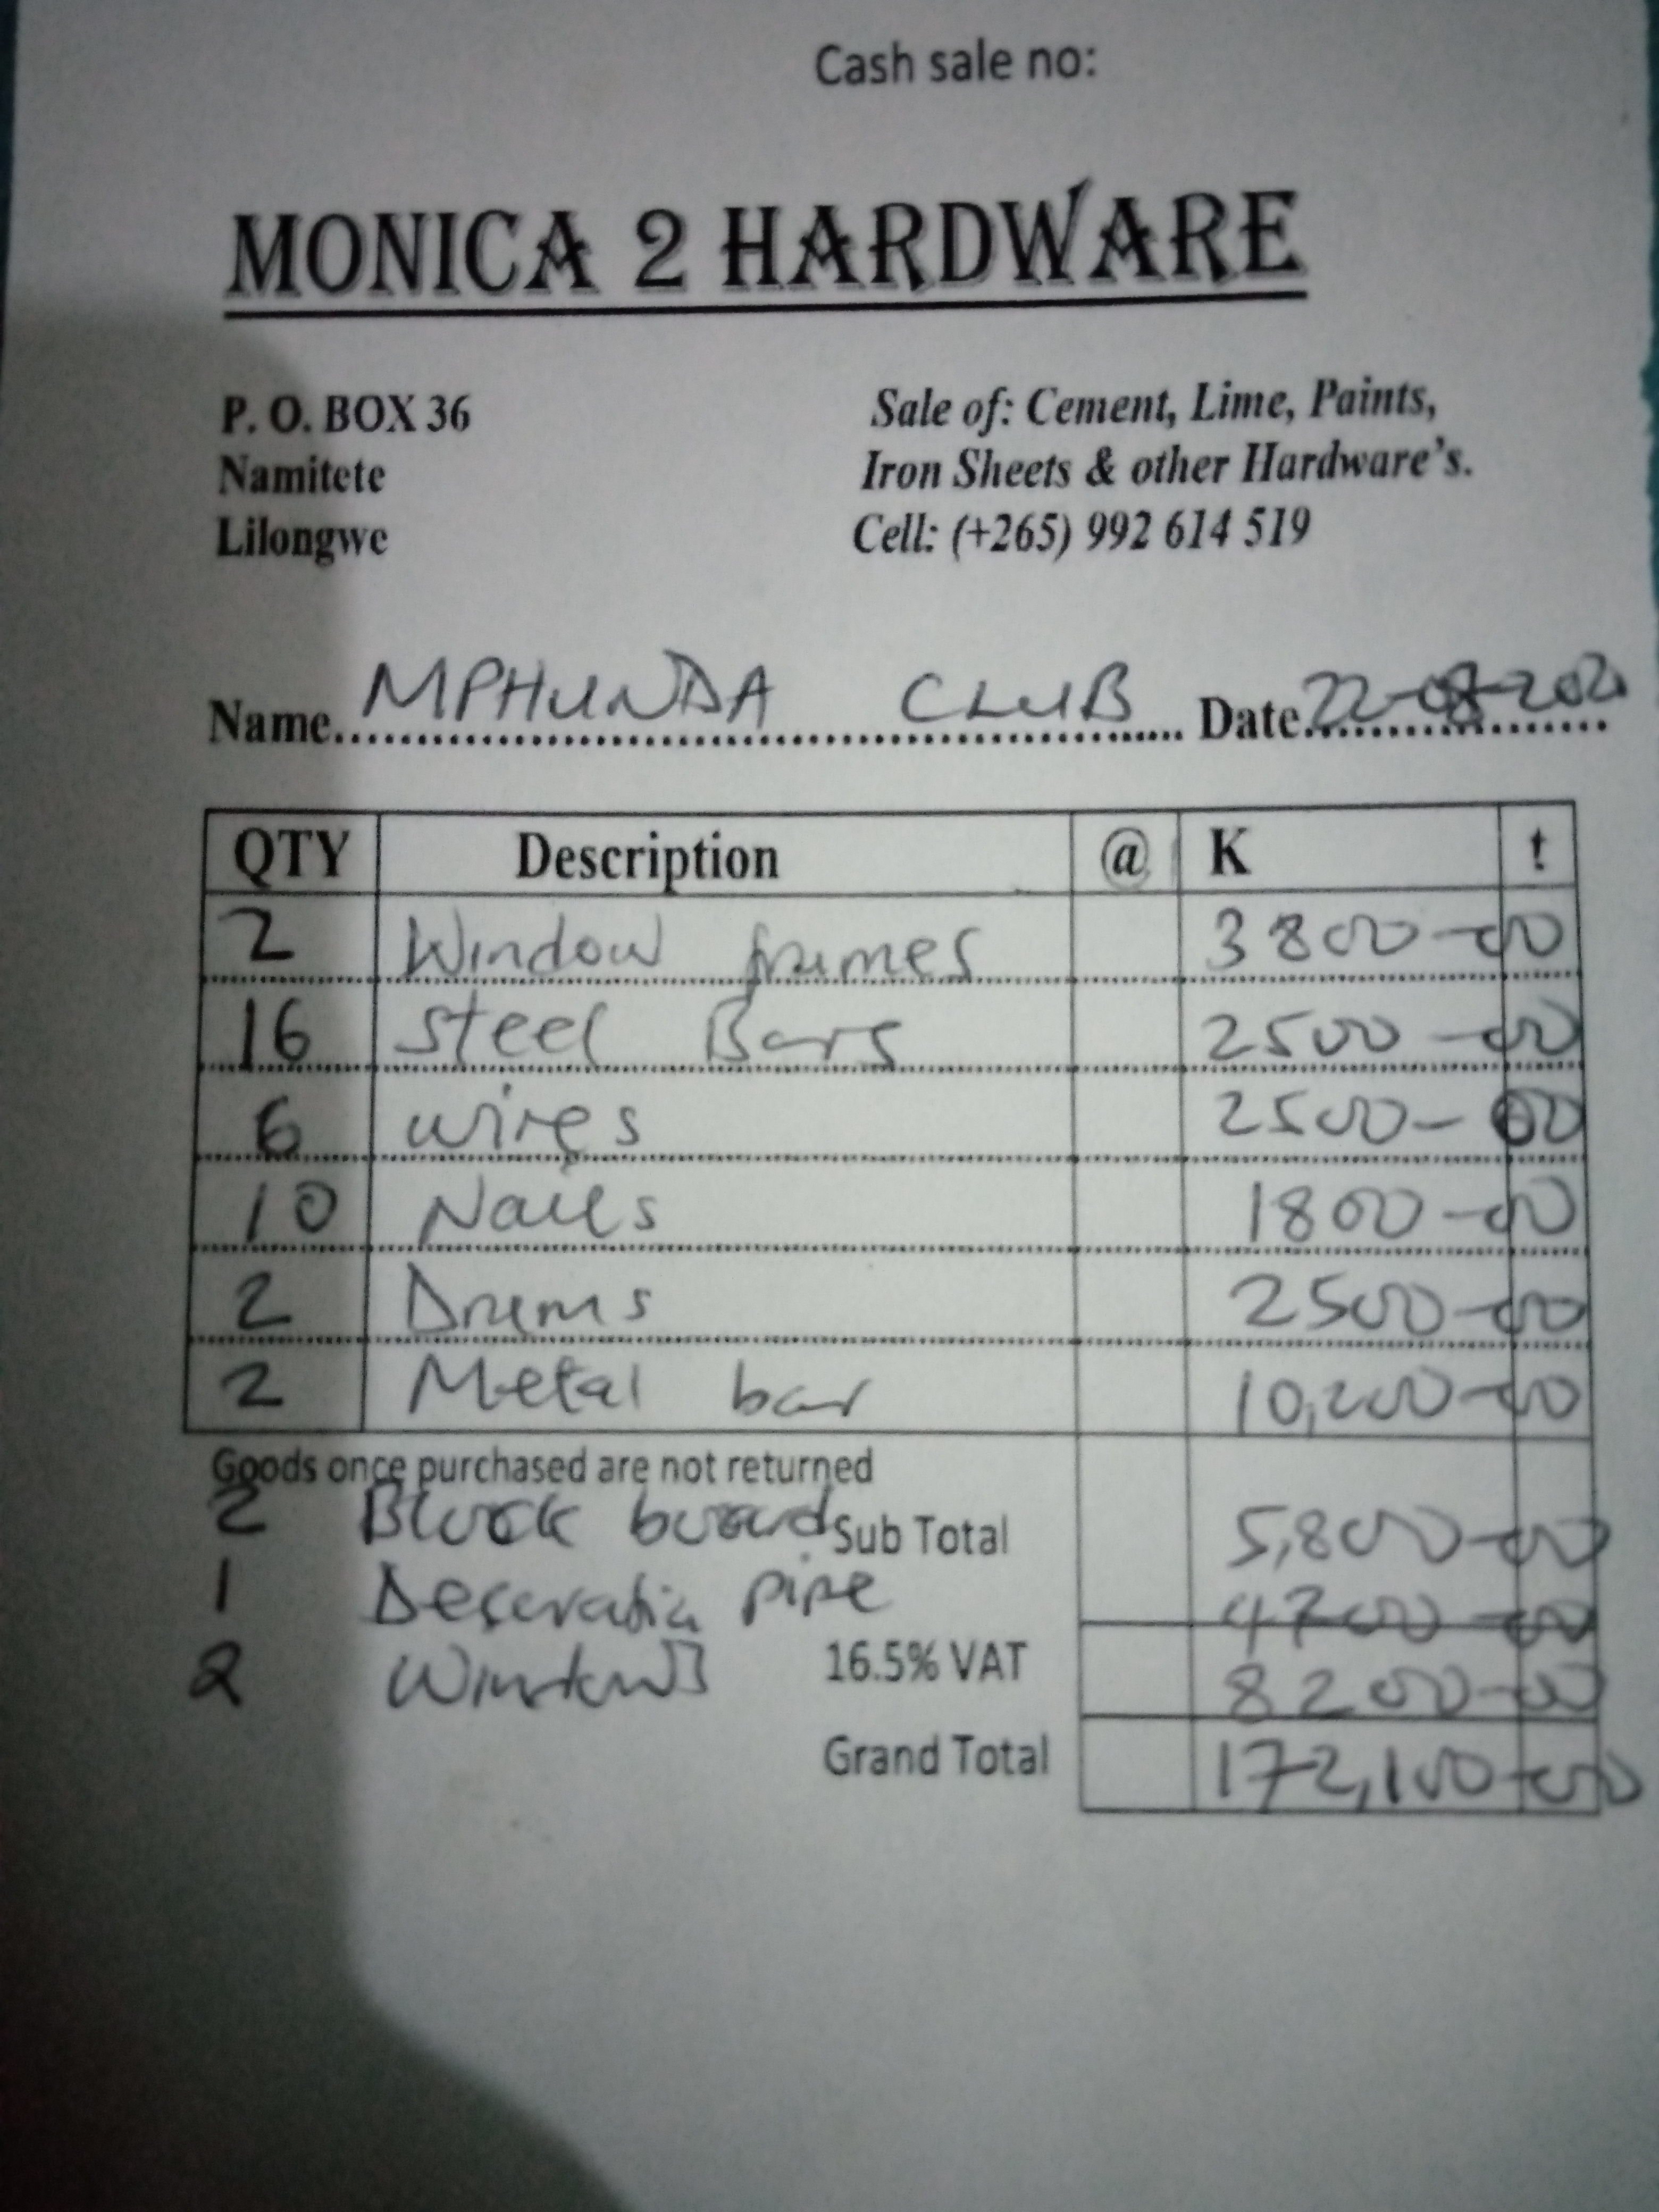 Cash sale no:
MONICA 2 HARDWARE
P. O. BOX 36
Sale of: Cement, Lime, Paints,
Namitete
Iron Sheets & other Hardware's.
Lilongwe
Cell: (+265) 992 614 519
Name MPHUNDA CLUB Date 22-08-202
QTY Description @ K t
2 Window frames 3800-00
16 Steel Bars 2500-00
6 wires 2500-00
10 Nails 1800-00
2 Drums 2500-00
2 Metal bar 10,200-00
Goods once purchased are not returned
2 Block board Sub Total 5,800-00
1 pipe 4700-00
2 16.5% VAT 8200-00
Grand Total 172,100-00